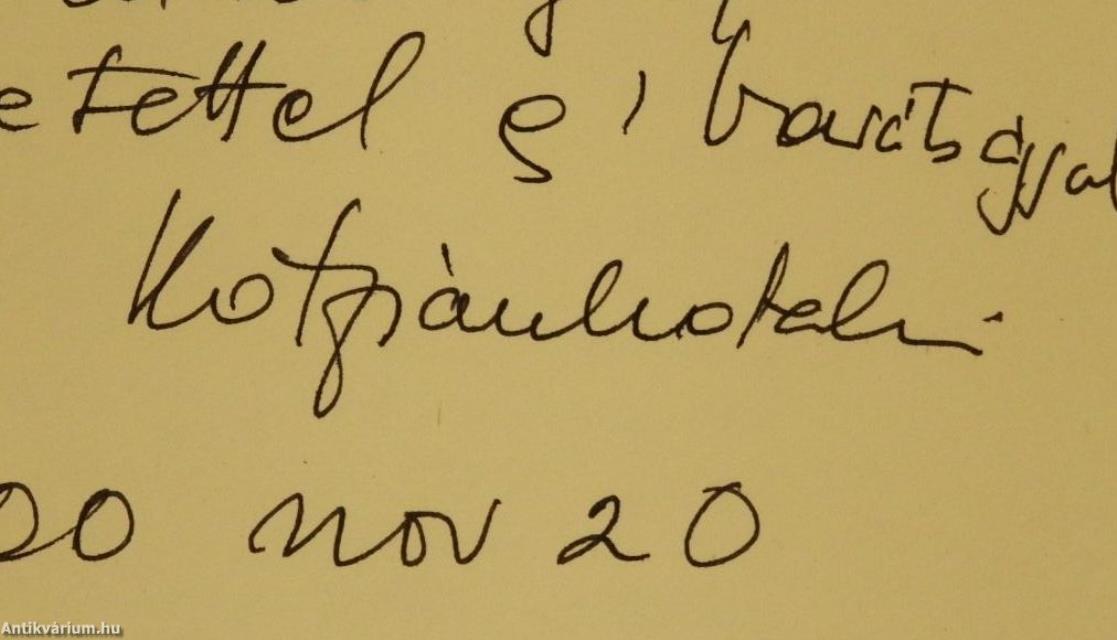 etettel és barátsággal
Kotzián Katalin
00 nov 20
Antikvárium.hu